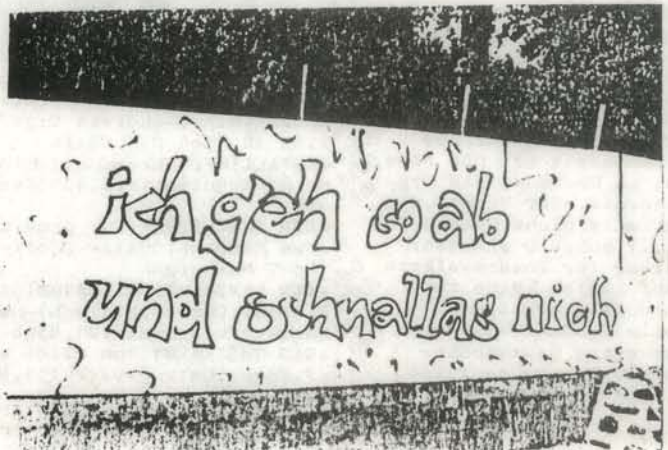 ich geh so ab
und schnallas nich